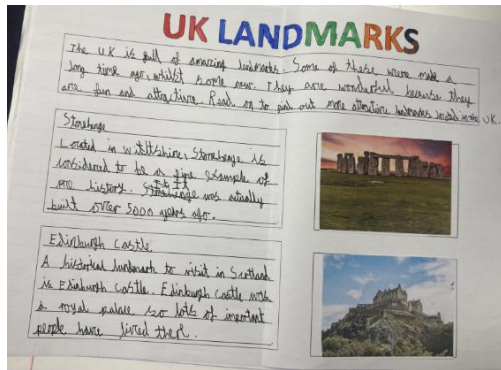 UK LANDMARKS
The UK is full of amazing landmarks. Some of these were made a
long time ago, whilst some now. They are wonderful because they
are fun and attractive. Read on to find out more attractive landmarks in the UK.
Stonehenge
Located in Wiltshire, Stonehenge is
considered to be a fine example of
pre history. It was actually
built over 5000 years ago.
Edinburgh Castle
A historical landmark to visit in Scotland
is Edinburgh Castle. Edinburgh Castle was
a royal palace so lots of important
people have lived there.